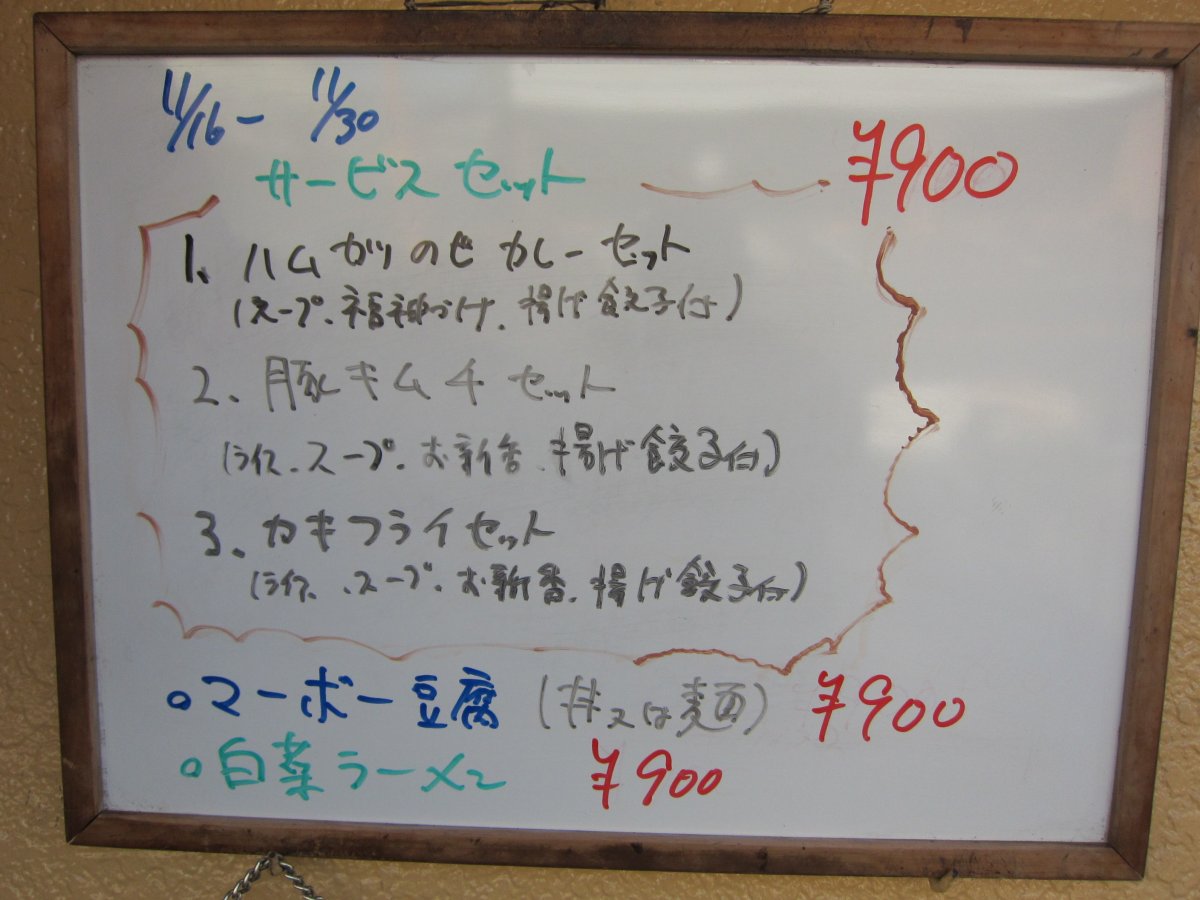 11/16- 11/30
サービスセット ¥900
1、ハムカツのせカレーセット
(スープ、福神づけ、揚げ餃子付)
2、豚キムチセット
(ライス、スープ、お新香、揚げ餃子付)
3、カキフライセット
(ライス、スープ、お新香、揚げ餃子付)
○マーボー豆腐(丼又は麺) ¥900
○白菜ラーメン ¥900